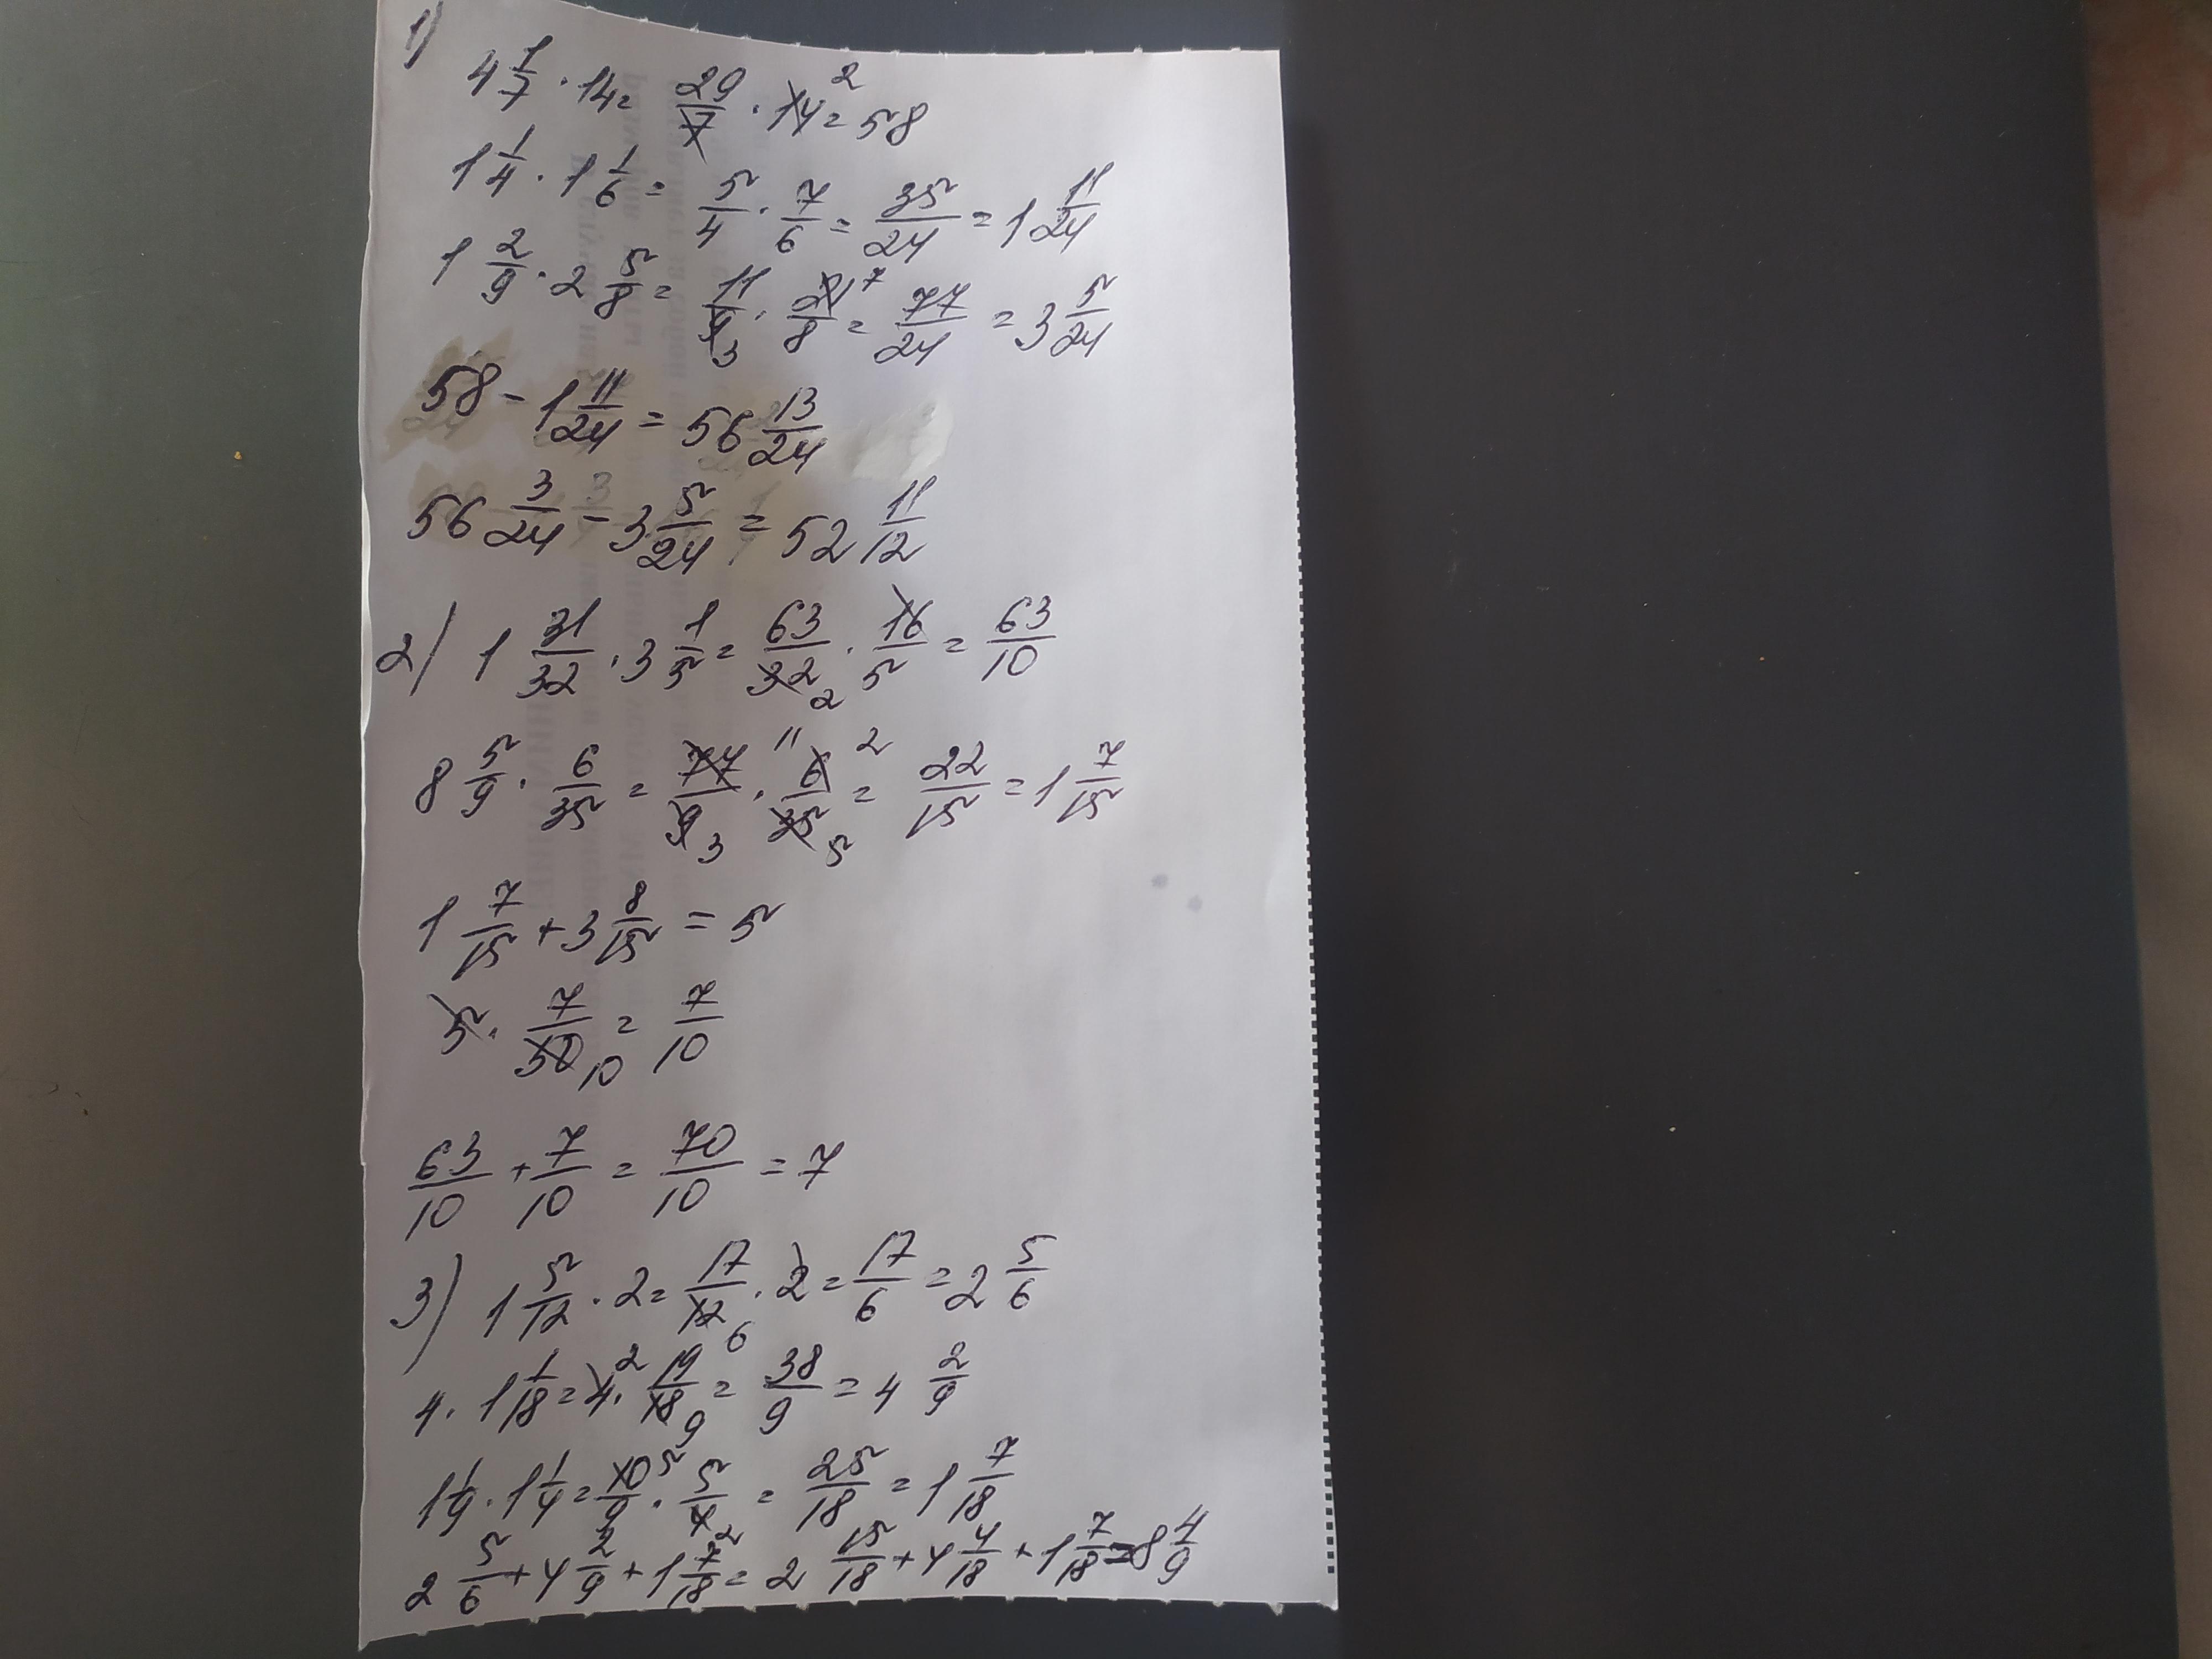 1)
4 1/7 · 14 = 29/7 · 14 2 = 58
1 1/4 · 1 1/6 = 5/4 · 7/6 = 35/24 = 1 11/24
1 2/9 · 2 5/8 = 11/9 3 · 21 7/8 = 77/24 = 3 5/24
58 - 1 11/24 = 56 13/24
56 3/24 - 3 5/24 = 52 11/12
2) 1 31/32 · 3 1/5 = 63/32 2 · 16/5 = 63/10
8 5/9 · 6/35 = 77 11/9 3 · 6 2/35 5 = 22/15 = 1 7/15
1 7/15 + 3 8/15 = 5
5 · 7/50 10 = 7/10
63/10 + 7/10 = 70/10 = 7
3) 1 5/12 · 2 = 17/12 6 · 2 = 17/6 = 2 5/6
4 · 1 1/18 = 4 2 · 19/18 9 = 38/9 = 4 2/9
1 1/9 · 1 1/4 = 10 5/9 · 5/4 2 = 25/18 = 1 7/18
2 5/6 + 4 2/9 + 1 7/18 = 2 15/18 + 4 4/18 + 1 7/18 = 8 4/9